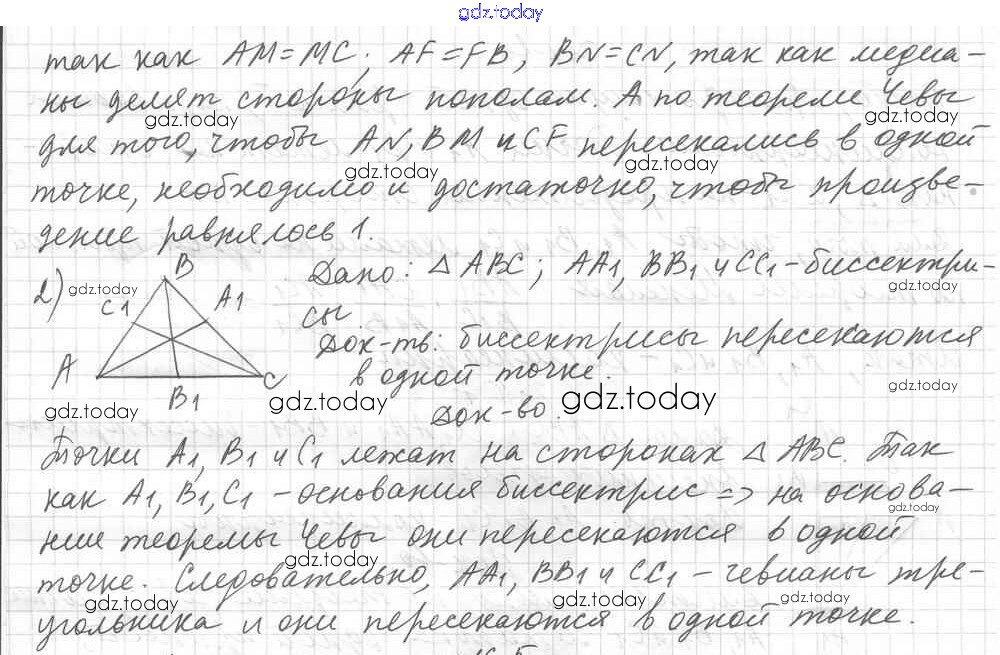 gdz.today
так как AM=MC; AF=FB, BN=CN, так как медиа-
ны делят стороны пополам. А по теореме Чевы
gdz.today gdz.today
для того, чтобы AN, BM и CF пересекались в одной
gdz.today gdz.today
точке, необходимо и достаточно, чтобы произве-
дение равнялось 1.
2) B
gdz.today
C1 A1
A C
B1
Дано: △ ABC; AA1, BB1 и CC1 - биссектри-
gdz.today
сы
Док-ть: биссектрисы пересекаются
в одной точке.
gdz.today
gdz.today gdz.today gdz.today
Док-во.
Точки A1, B1 и C1 лежат на сторонах △ ABC. Так
как A1, B1, C1 - основания биссектрис => на основа-
gdz.today
нии теоремы Чевы они пересекаются в одной
gdz.today
точке. Следовательно, AA1, BB1 и CC1 - чевианы тре-
gdz.today gdz.today gdz.today
угольника и они пересекаются в одной точке.